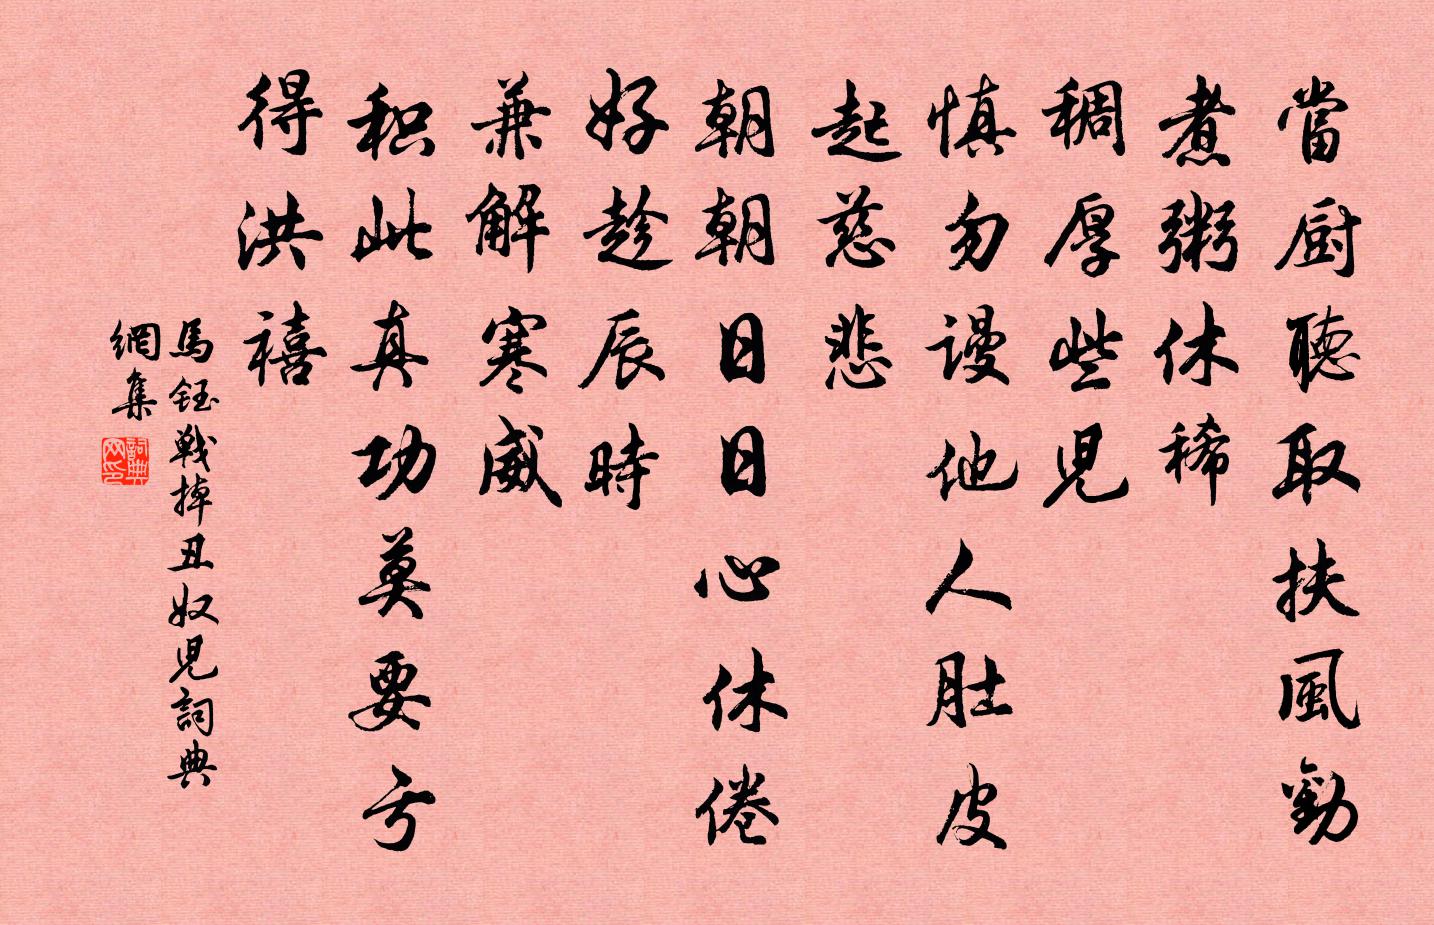 當厨聽取扶風勸
煮粥休稀
稠厚些兒
慎勿谩他人肚皮
起慈悲
朝朝日日心休倦
好趁辰時
兼解寒威
积此真功莫要亏
得洪禧
馬鈺戰掉丑奴兒詞典
網集
詞典網印